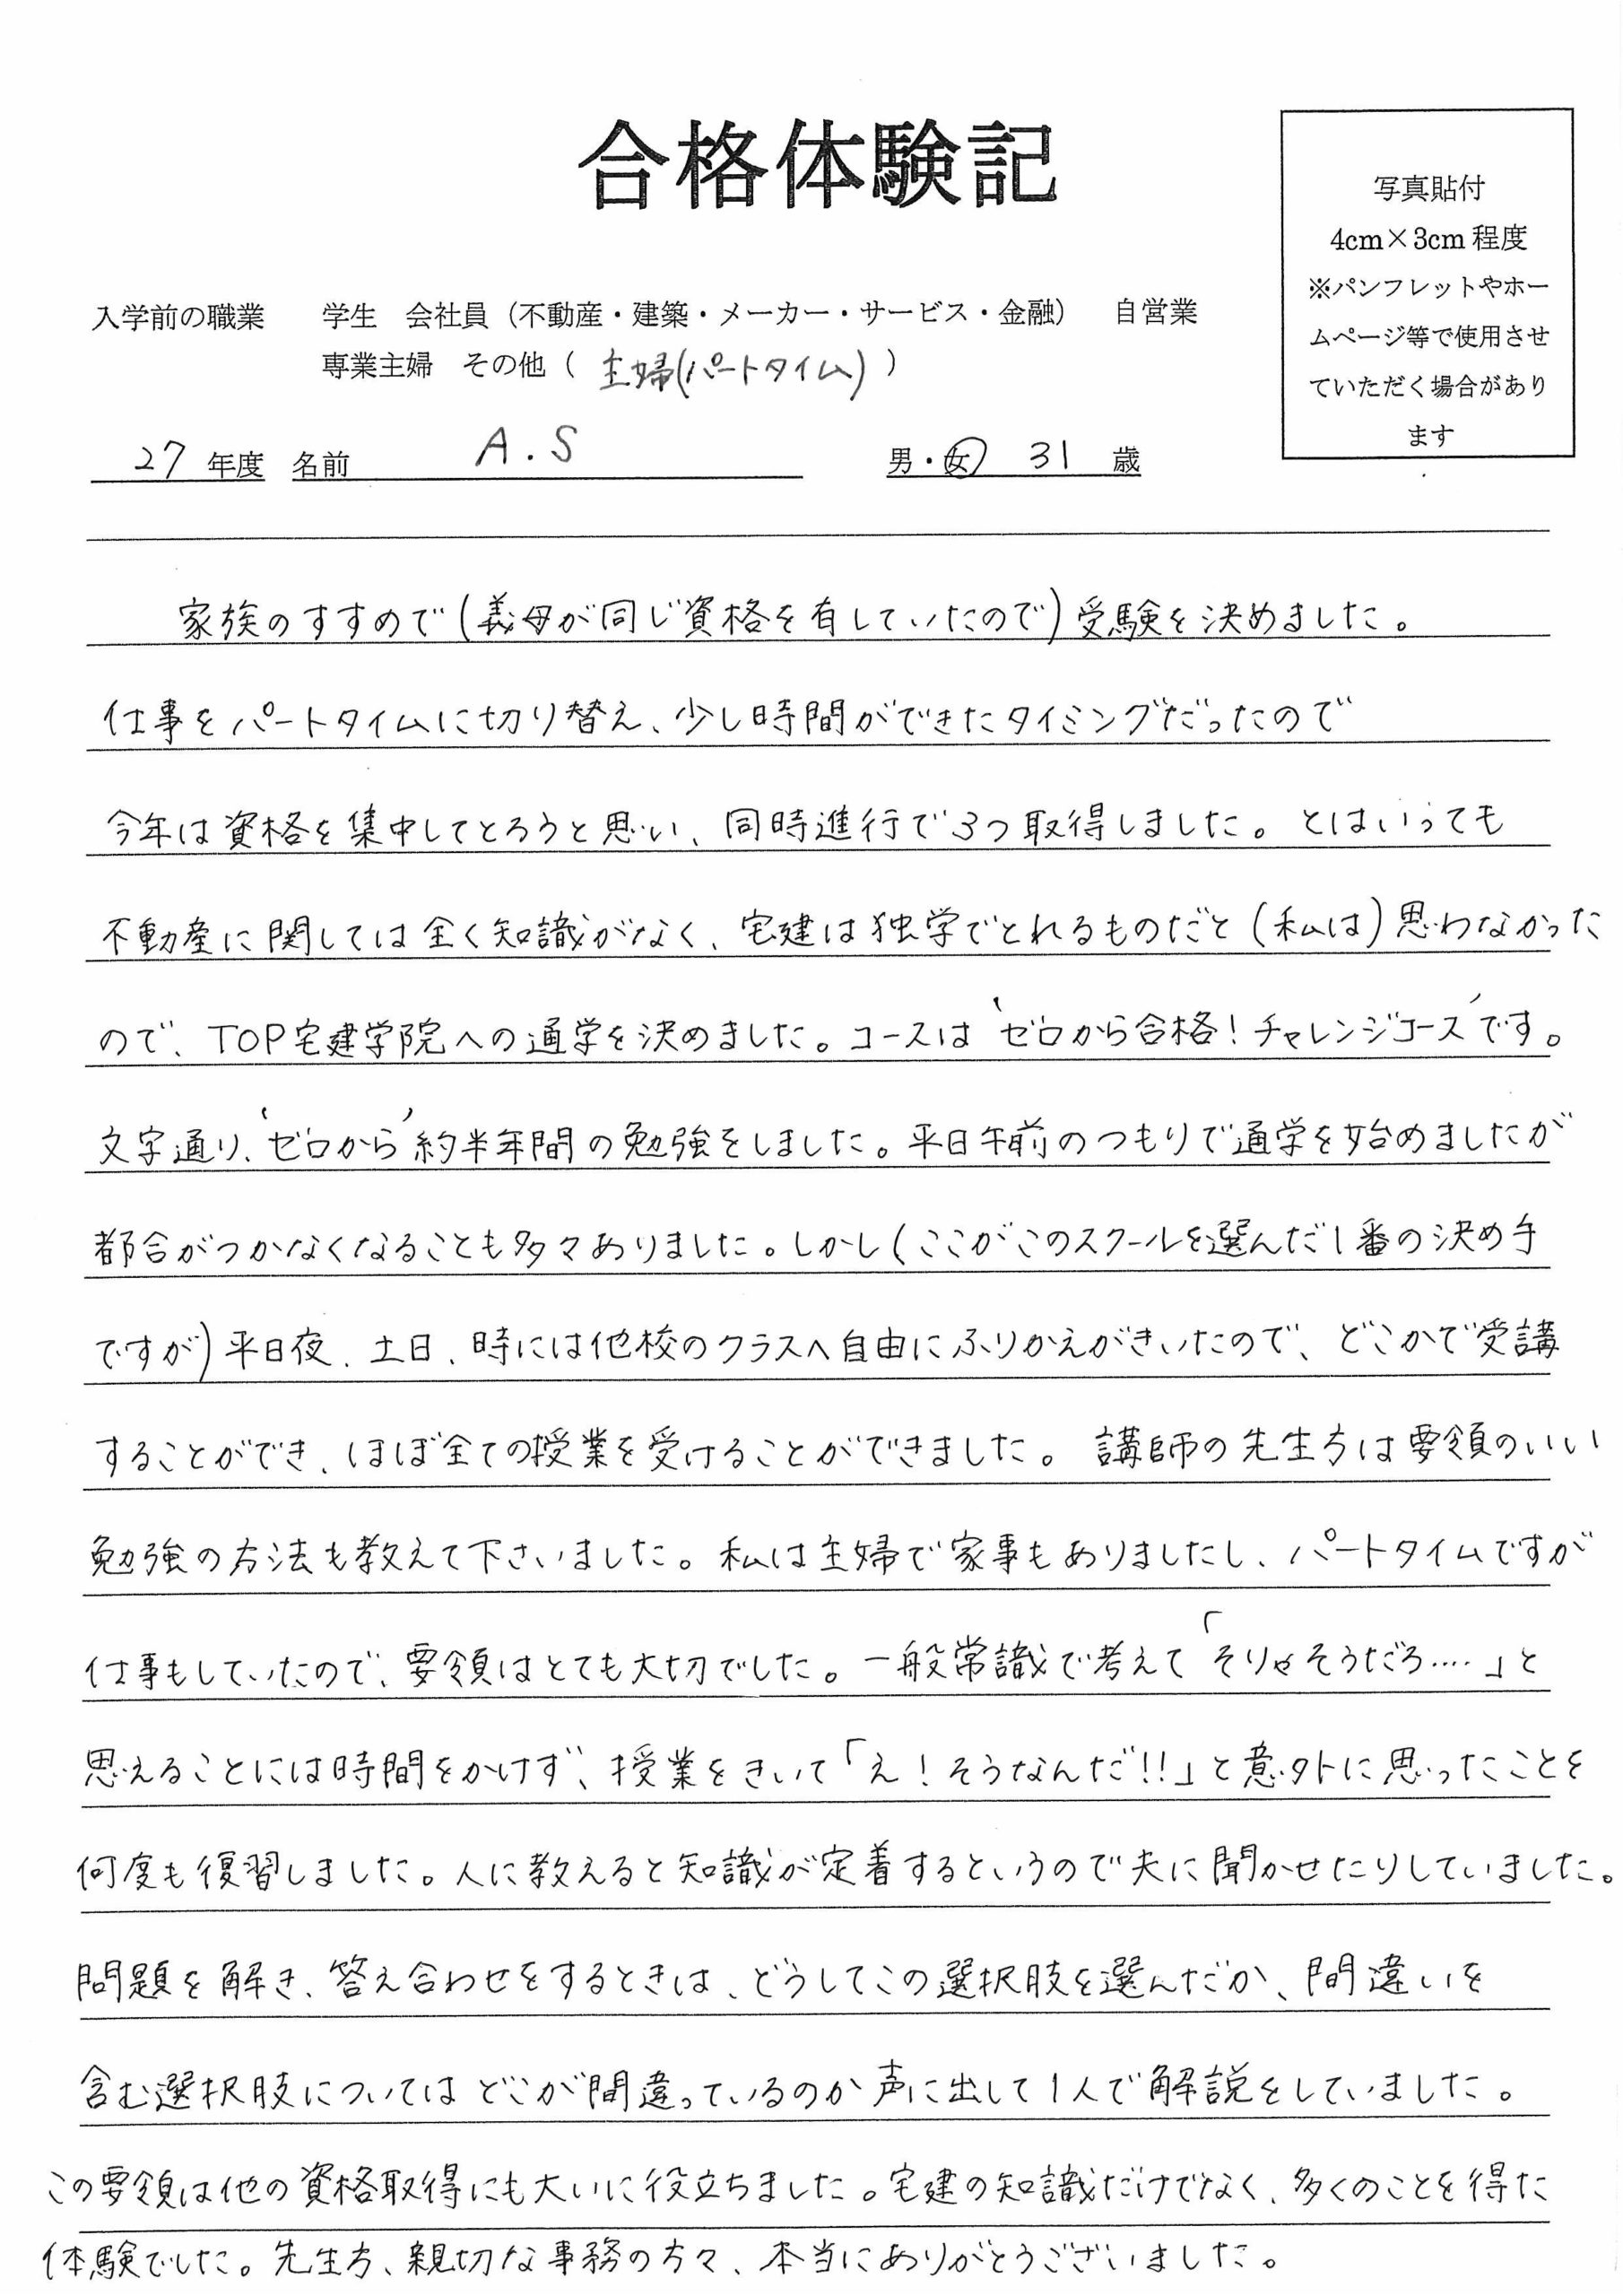 合格体験記
写真貼付
4cm×3cm程度
※パンフレットやホー
ムページ等で使用させ
ていただく場合があり
ます
入学前の職業 学生 会社員（不動産・建築・メーカー・サービス・金融） 自営業
専業主婦 その他（ 主婦(パートタイム) ）
27 年度 名前 A.S 男・女 31 歳
家族のすすめで(義母が同じ資格を有していたので)受験を決めました。
仕事をパートタイムに切り替え、少し時間ができたタイミングだったので
今年は資格を集中してとろうと思い、同時進行で3つ取得しました。とはいっても
不動産に関しては全く知識がなく、宅建は独学でとれるものだと(私は)思わなかった
ので、TOP宅建学院への通学を決めました。コースは‘ゼロから合格！チャレンジコース’です。
文字通り、‘ゼロから’約半年間の勉強をしました。平日午前のつもりで通学を始めましたが
都合がつかなくなることも多々ありました。しかし(ここがこのスクールを選んだ1番の決め手
ですが)平日夜、土日、時には他校のクラスへ自由にふりかえがきいたので、どこかで受講
することができ、ほぼ全ての授業を受けることができました。講師の先生方は要領のいい
勉強の方法も教えて下さいました。私は主婦で家事もありましたし、パートタイムですが
仕事もしていたので、要領はとても大切でした。一般常識で考えて「そりゃそうだろ‥‥」と
思えることには時間をかけず、授業をきいて「え！そうなんだ!!」と意外に思ったことを
何度も復習しました。人に教えると知識が定着するというので夫に聞かせたりしていました。
問題を解き、答え合わせをするときは、どうしてこの選択肢を選んだか、間違いを
含む選択肢についてはどこが間違っているのか声に出して1人で解説をしていました。
この要領は他の資格取得にも大いに役立ちました。宅建の知識だけでなく、多くのことを得た
体験でした。先生方、親切な事務の方々、本当にありがとうございました。